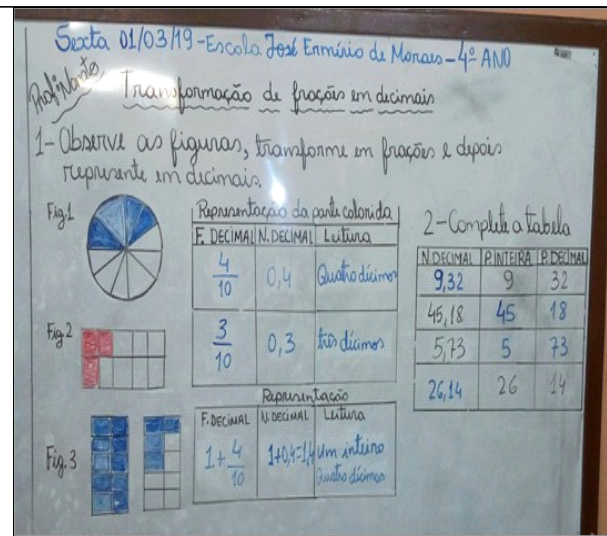 Sexta 01/03/19-Escola José Ermínio de Moraes-4º ANO
Transformação de frações em decimais
1-Observe as figuras, transforme em frações e depois
represente em decimais.
Fig.1
Representação da parte colorida
F. DECIMAL N. DECIMAL Leitura
4/10 0,4 Quatro décimos
Fig 2
3/10 0,3 três décimos
Representação
F. DECIMAL N. DECIMAL Leitura
Fig. 3
1+4/10 1+0,4=1,4 um inteiro
Quatro décimos
2-Complete a tabela
N.DECIMAL P.INTEIRA P.DECIMAL
9,32 9 32
45,18 45 18
5,73 5 73
26,14 26 14